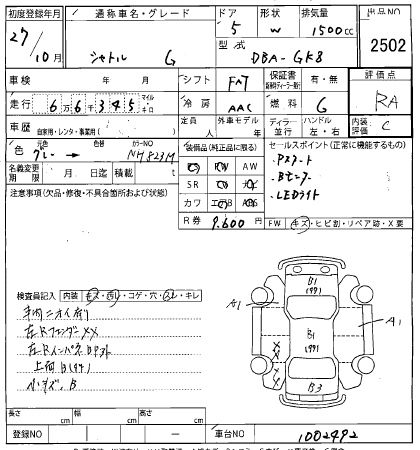 初度登録年月 通称車名・グレード ドア 形状 排気量 出品NO
27/10月 シャトル G 5 W 1500cc 2502
型式 DBA-GK8
車検 年 月 シフト FAT 保証書 有・無 評価点
走行 6万6千345 マイル・キロ 冷房 AAC 燃料 G RA
車歴 自家用・レンタ・事業用( ) 定員 人 外車モデル 年 ディーラー・並行 ハンドル 左・右 内装評価 C
色 元色 グレー → 色替 カラーNO NH823M
装備品(純正品に限る) セールスポイント(正常に機能するもの)
名義変更期限 月 日迄 積載 t
PS PW AW
SR ナビ カワ エアB ABS
Pスタート
Bモニター
LEDライト
注意事項(欠品・修復・不具合箇所および状態)
R券 9,600円
FW キズ・ヒビ割・リペア跡・X要
検査員記入 内装 キズ・汚レ・コゲ・穴・スレ・キレ
車内ニオイ有り
左Rフェンダー XX
左RインパネBPスト
小キズ、B
B1
1991
A1
A1
B1
1991
XX
B3
長さ cm 幅 cm 高さ cm
登録NO 車台NO 1002492